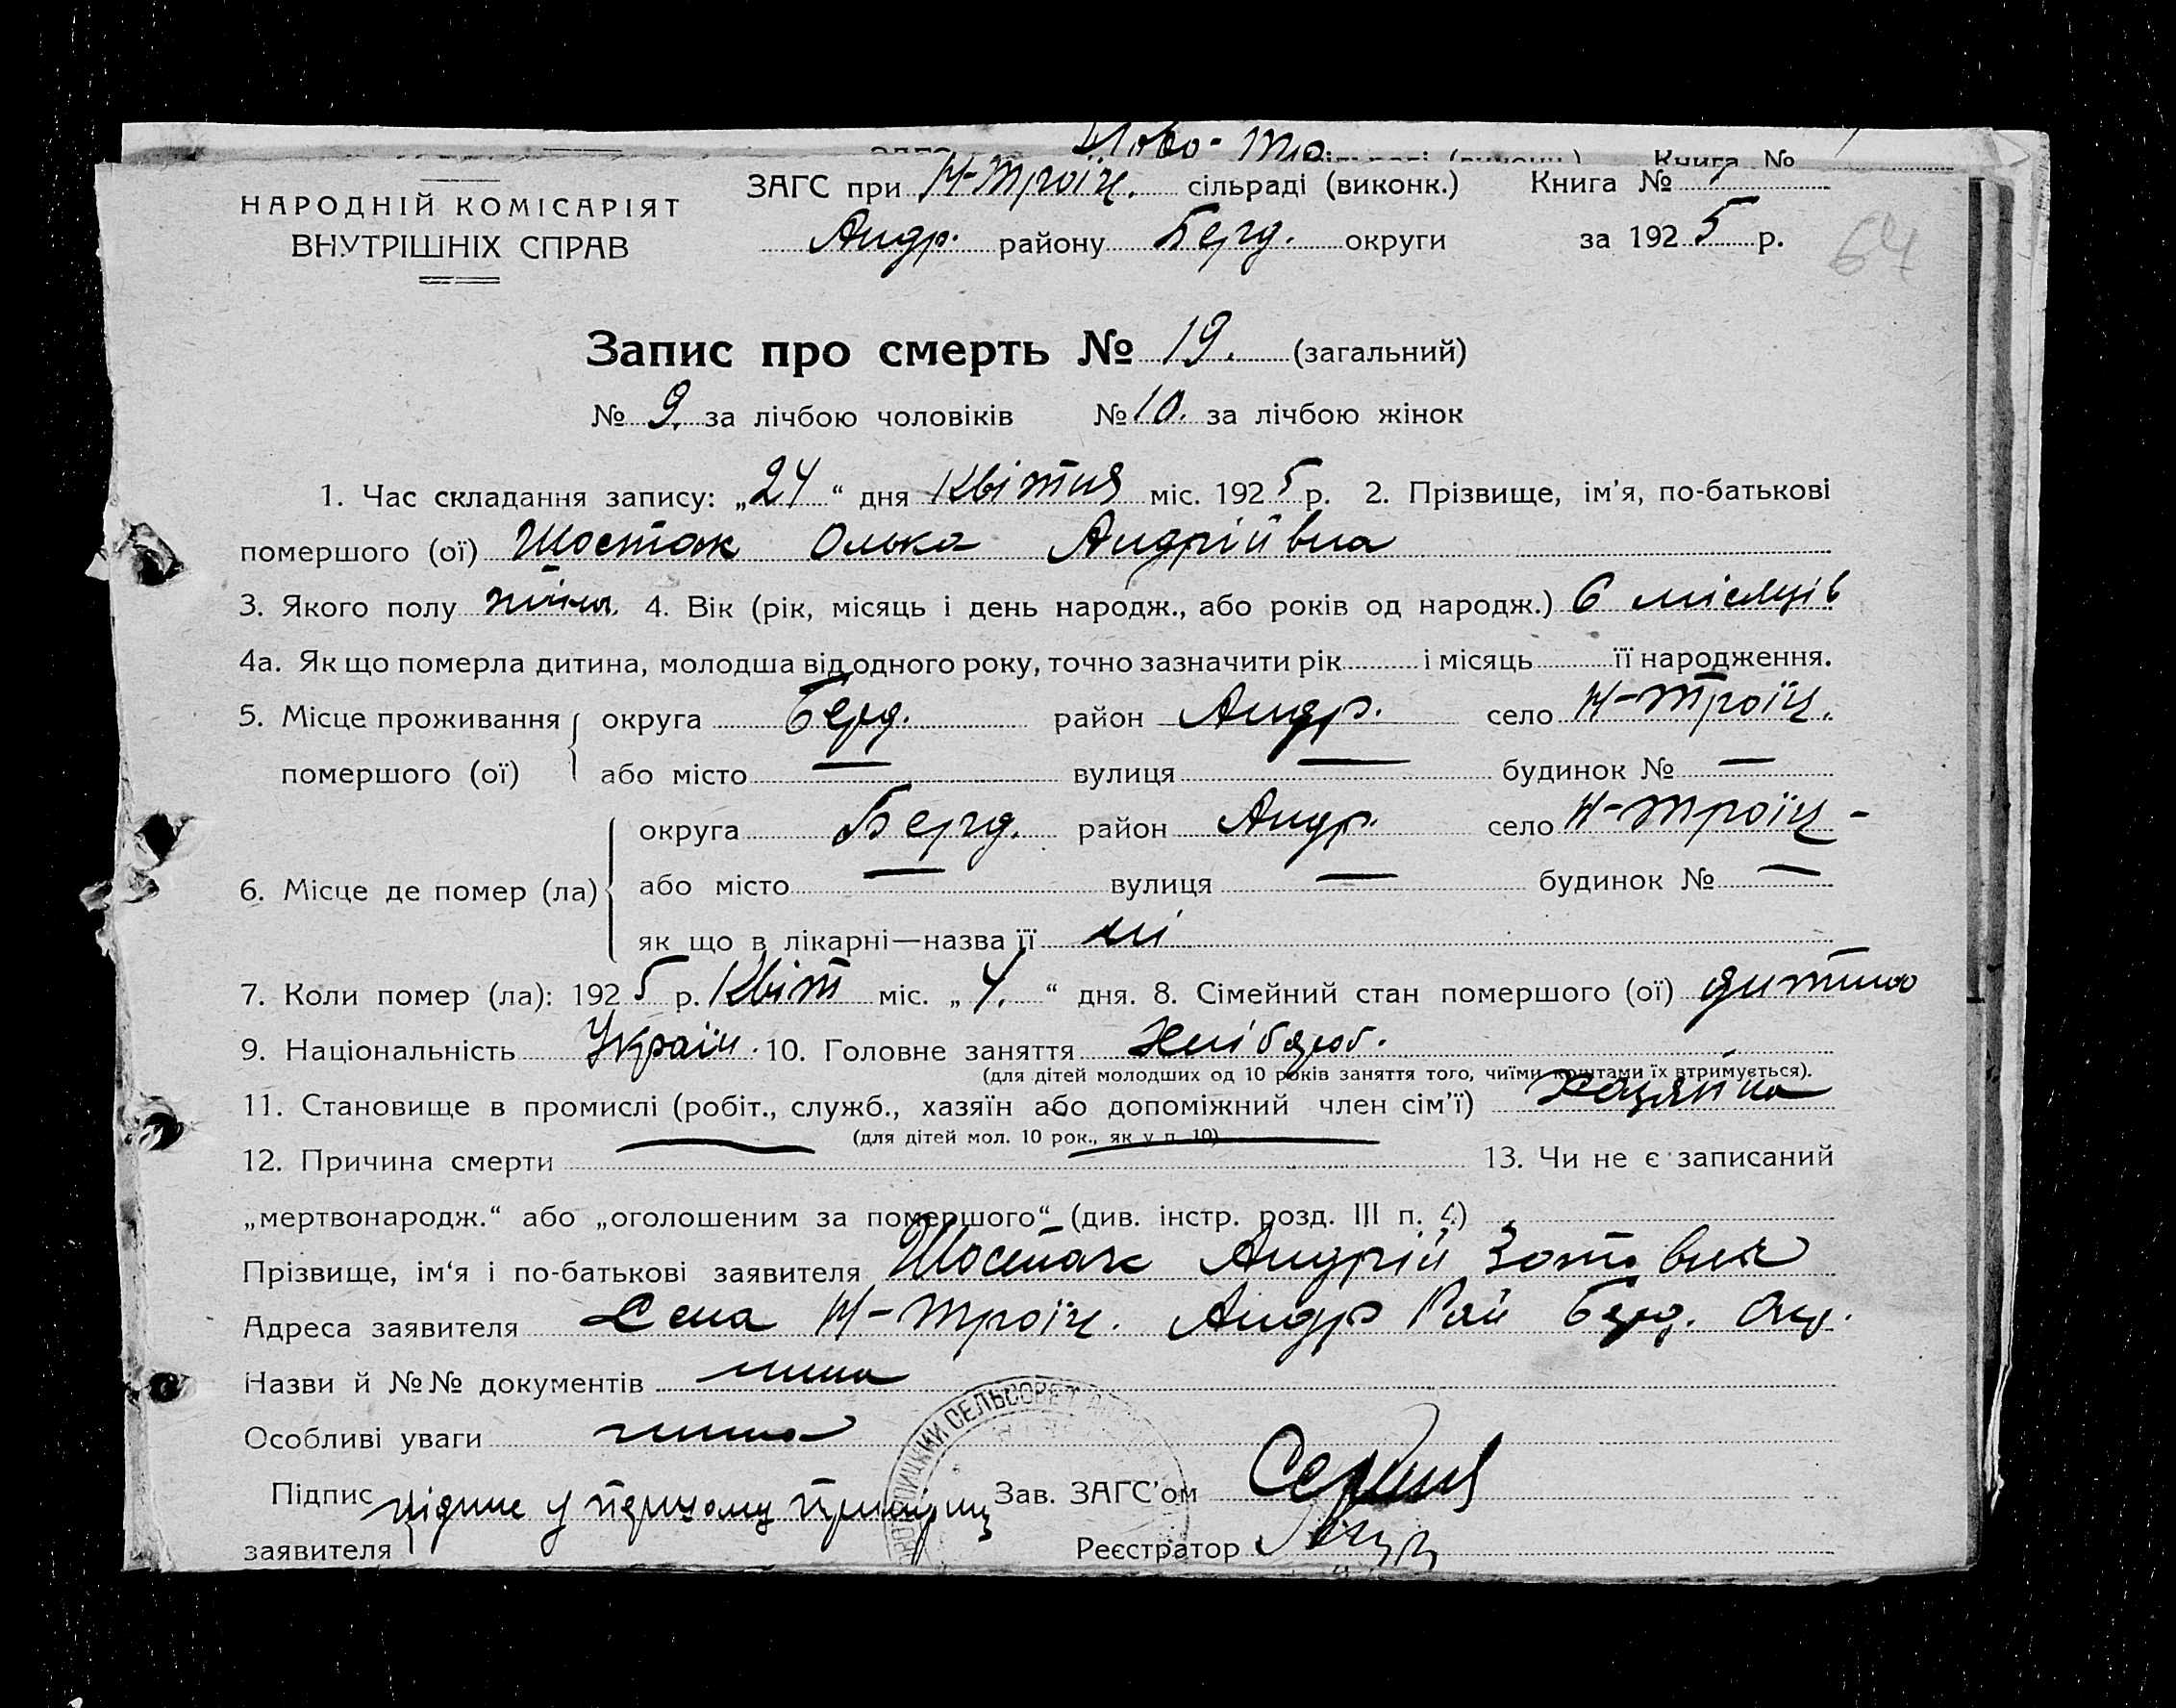 Ново-Тро
Книга №
НАРОДНІЙ КОМІСАРІЯТ
ВНУТРІШНІХ СПРАВ
ЗАГС при Н-Троїц. сільраді (виконк.) Книга №
Андр. району Берд. округи за 1925 р.
64
Запис про смерть № 19. (загальний)
№ 9. за лічбою чоловіків № 10. за лічбою жінок
1. Час складання запису: „24“ дня Квітня міс. 1925 р. 2. Прізвище, ім'я, по-батькові
помершого (ої) Шостак Олька Андрійівна
3. Якого полу жіно. 4. Вік (рік, місяць і день народж., або років од народж.) 6 місяців
4а. Як що померла дитина, молодша від одного року, точно зазначити рік і місяць її народження.
5. Місце проживання округа Берд. район Андр. село Н-Троїц.
помершого (ої) або місто — вулиця — будинок № —
округа Берд. район Андр. село Н-Троїц-
6. Місце де помер (ла) або місто — вулиця — будинок № —
як що в лікарні—назва її ні
7. Коли помер (ла): 1925 р. Квіт міс. „4.“ дня. 8. Сімейний стан помершого (ої) дитина
9. Національність Україн. 10. Головне заняття Хлібороб.
(для дітей молодших од 10 років заняття того, чиїми коштами їх втримується).
11. Становище в промислі (робіт., служб., хазяїн або допоміжний член сім'ї) хазяйка
(для дітей мол. 10 рок., як у п. 10)
12. Причина смерти — — 13. Чи не є записаний
„мертвонародж.“ або „оголошеним за помершого“ (див. інстр. розд. III п. 4)
Прізвище, ім'я і по-батькові заявителя Шостак Андрій
Адреса заявителя Села Н-Троїц. Андр Рай Берд. Окр.
Назви й №№ документів нима
Особливі уваги нима
СЕЛЬСОВЕТ
Підпис підпис у першому Зав. ЗАГС'ом
заявителя Реєстратор